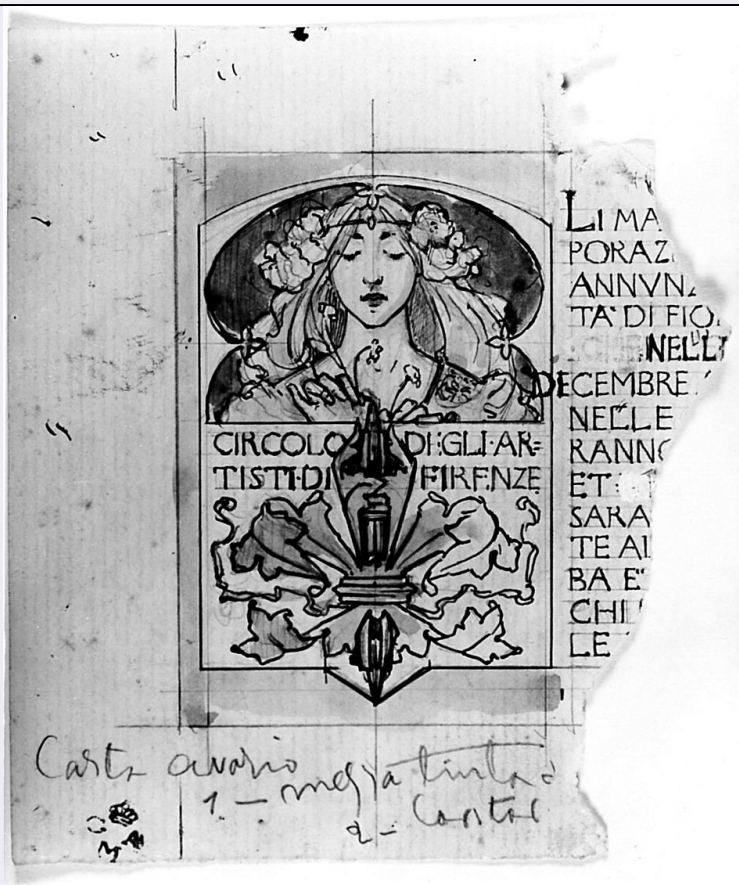 CIRCOLO DEGLI·AR=
TISTI·DI FIRENZE
LI MA
PORAZ
ANNVN
TA' DI FIO
NELL
DECEMBRE
NELLE
RANNO
ET
SARA
TE AL
BA E'
CHI
LE
Carta avorio
1 – mezza tinta
2 –